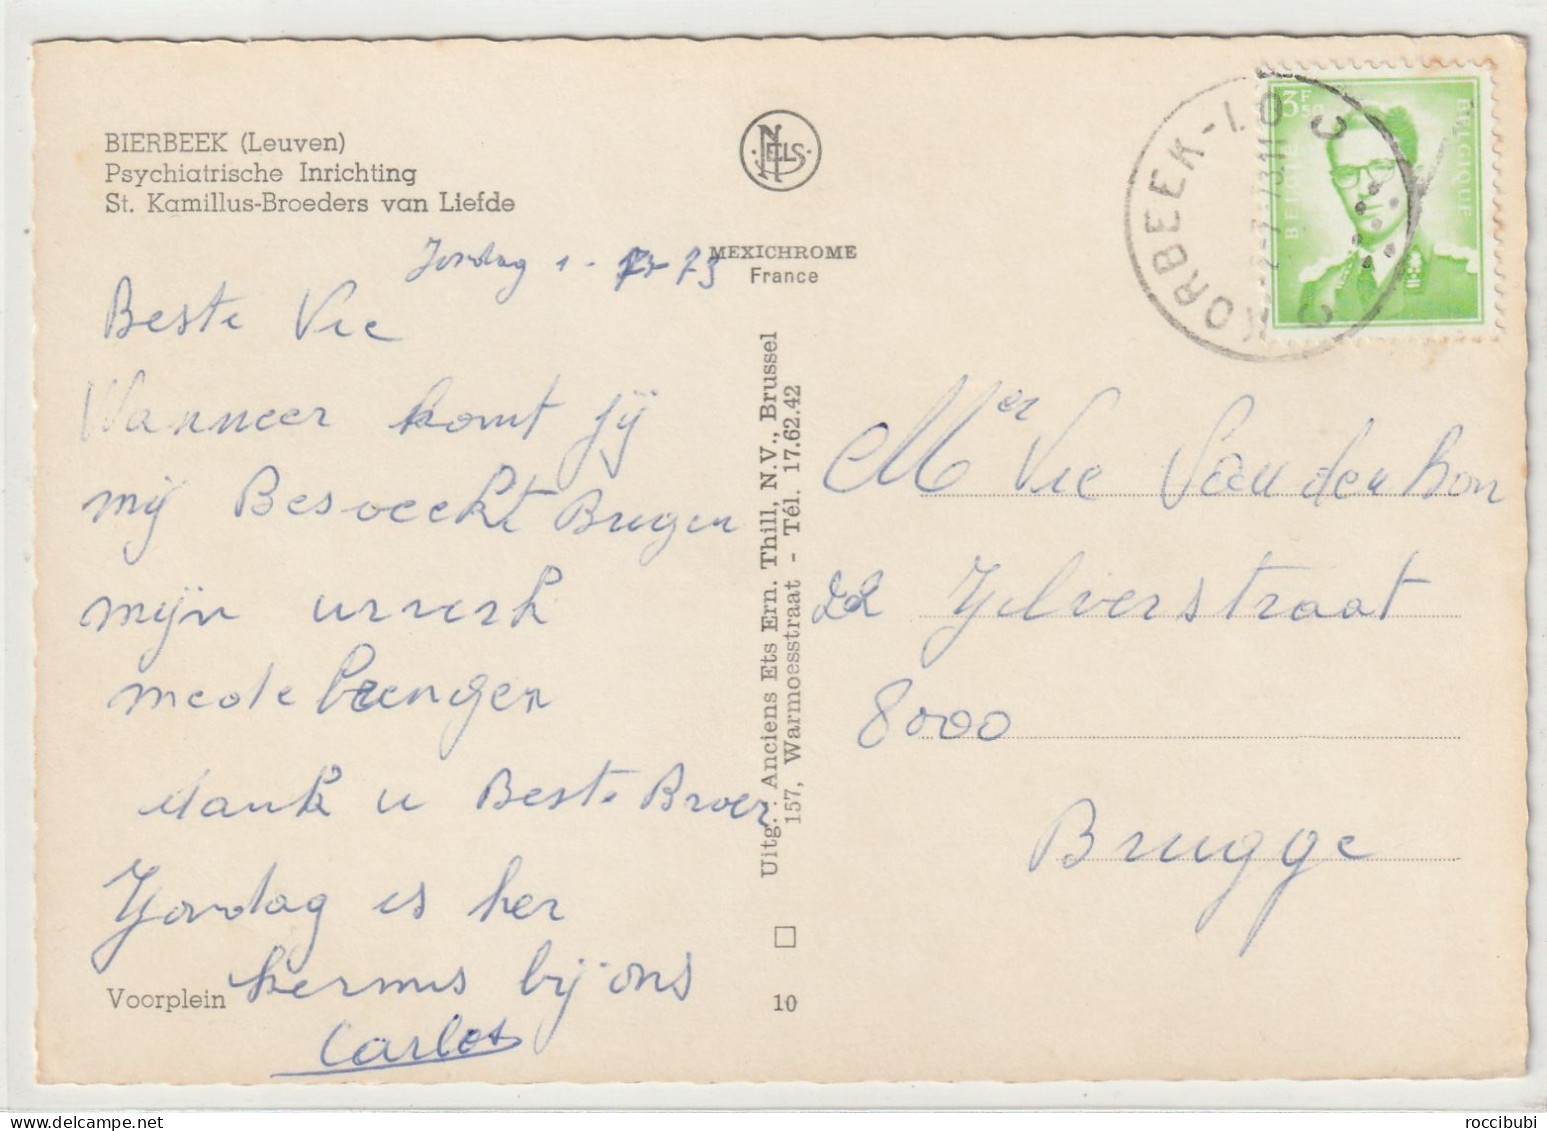 BIERBEEK (Leuven)
Psychiatrische Inrichting
St. Kamillus-Broeders van Liefde
NELS
MEXICHROME
France
Beste Vic
Wanneer komt jij
mij Besoeckt Brugen
mijn urrerk
mede brengen
dank u Beste Broer
Zondag is her
kermis bij ons
Carlos
Voorplein
Uitg. : Anciens Ets Ern. Thill, N.V., Brussel
157, Warmoesstraat - Tél. 17.62.42
10
KORBEEK-LO
3F50
BELGIE BELGIQUE
Mer Vic Vandenbon
22 Zilverstraat
8000
Brugge
roccibubi